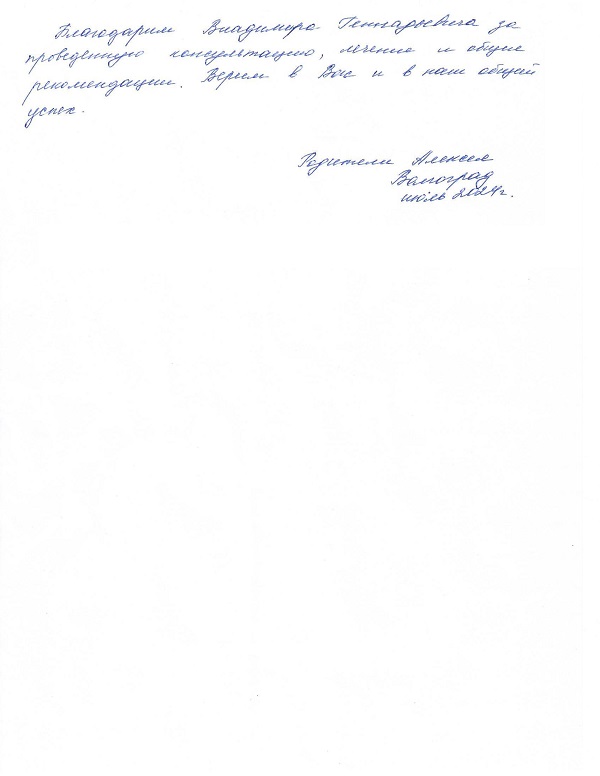 Благодарим Владимира Геннадьевича за
проведенную консультацию, лечение и общие
рекомендации. Верим в Вас и в наш общий
успех.
Родители Алексея
Волгоград
июль 2024г.